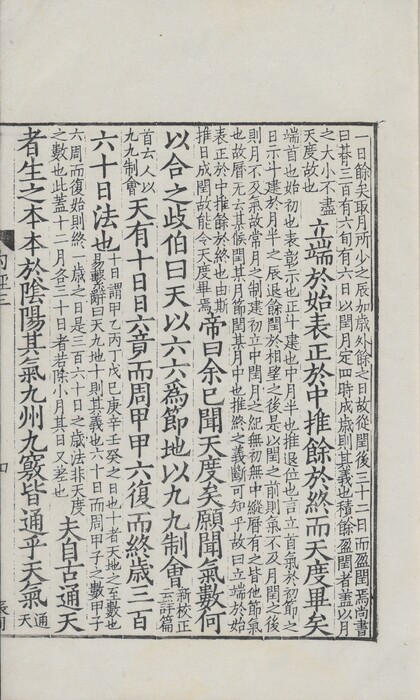 一日餘矣取月所少之辰加歲外餘之日故從閏後三十二日而盈閏焉尚書
曰朞三百有六旬有六日以閏月定四時成歲則其義也積餘盈閏者蓋以月
之大小不盡
天度故也
立端於始表正於中推餘於終而天度畢矣
端首也始初也表彰示也正斗建也中月半也推退位也言立首氣於初節之
日示斗建於月半之辰退餘閏於相望之後是以閏之前則氣不及月閏之後
則月不及氣故常月之制建初立中閏月之紀無初無中縱曆有之皆他節氣
也故曆无云某候閏某月節閏某月中也推終之義斷可知乎故曰立端於始
表正於中推餘於終也由斯
推日成閏故能令天度畢焉
帝曰余已聞天度矣願聞氣數何
以合之歧伯曰天以六六為節地以九九制會
新校正
云詳篇
首云人以
九九制會
天有十日日六竟而周甲甲六復而終歲三百
六十日法也
十日謂甲乙丙丁戊己庚辛壬癸之日也十者天地之至數也
易繫辭曰天九地十則其義也六十日而周甲子之數甲子
六周而復始則終一歲之日是三百六十日之歲法非天度
之數也此蓋十二月各三十日者若除小月其日又差也
夫自古通天
者生之本本於陰陽其氣九州九竅皆通乎天氣
通
天